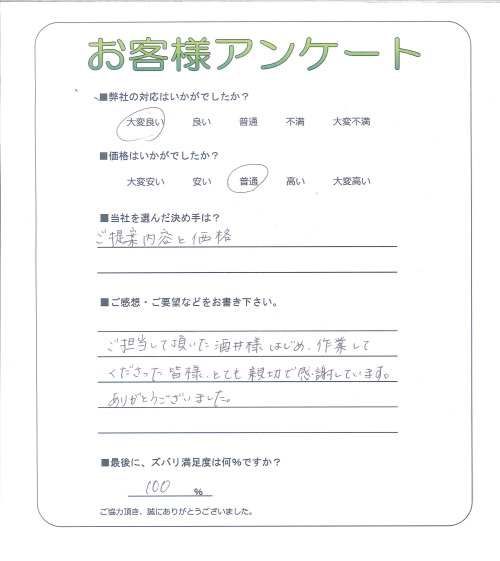 お客様アンケート
■弊社の対応はいかがでしたか？
大変良い 良い 普通 不満 大変不満
■価格はいかがでしたか？
大変安い 安い 普通 高い 大変高い
■当社を選んだ決め手は？
ご提案内容と価格
■ご感想・ご要望などをお書き下さい。
ご担当して頂いた酒井様はじめ、作業して
くださった皆様、とても親切で感謝しています。
ありがとうございました。
■最後に、ズバリ満足度は何％ですか？
100 ％
ご協力頂き、誠にありがとうございました。